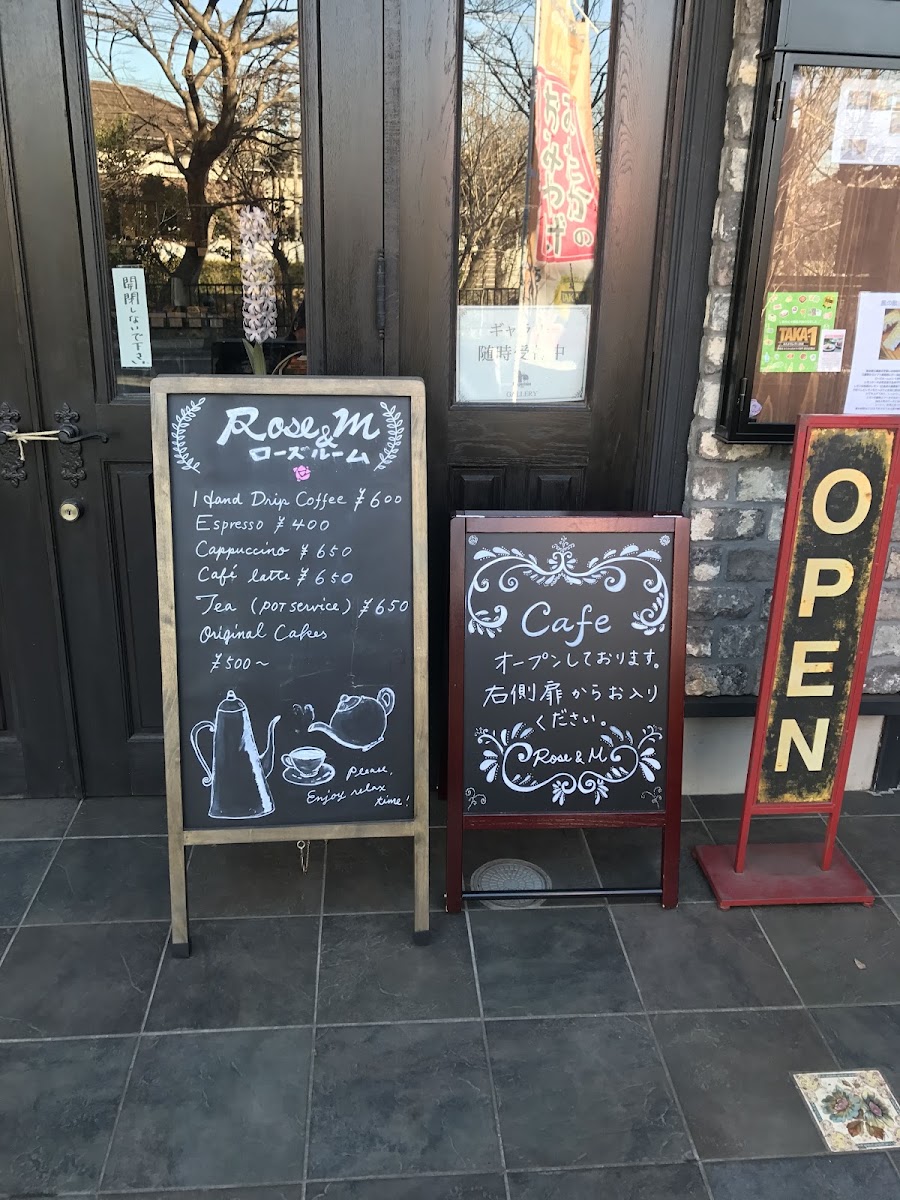 開閉しないで下さい。
おたかの
おみやげ
随時受付中
GALLERY
TAKA-1
Rose & M
ローズルーム
Hand Drip Coffee ¥600
Espresso ¥400
Cappuccino ¥650
Café latte ¥650
Tea (POT SERVICE) ¥650
Original Cakes
¥500~
Please,
Enjoy relax
time!
Cafe
オープンしております。
右側扉からお入り
ください。
Rose & M
OPEN